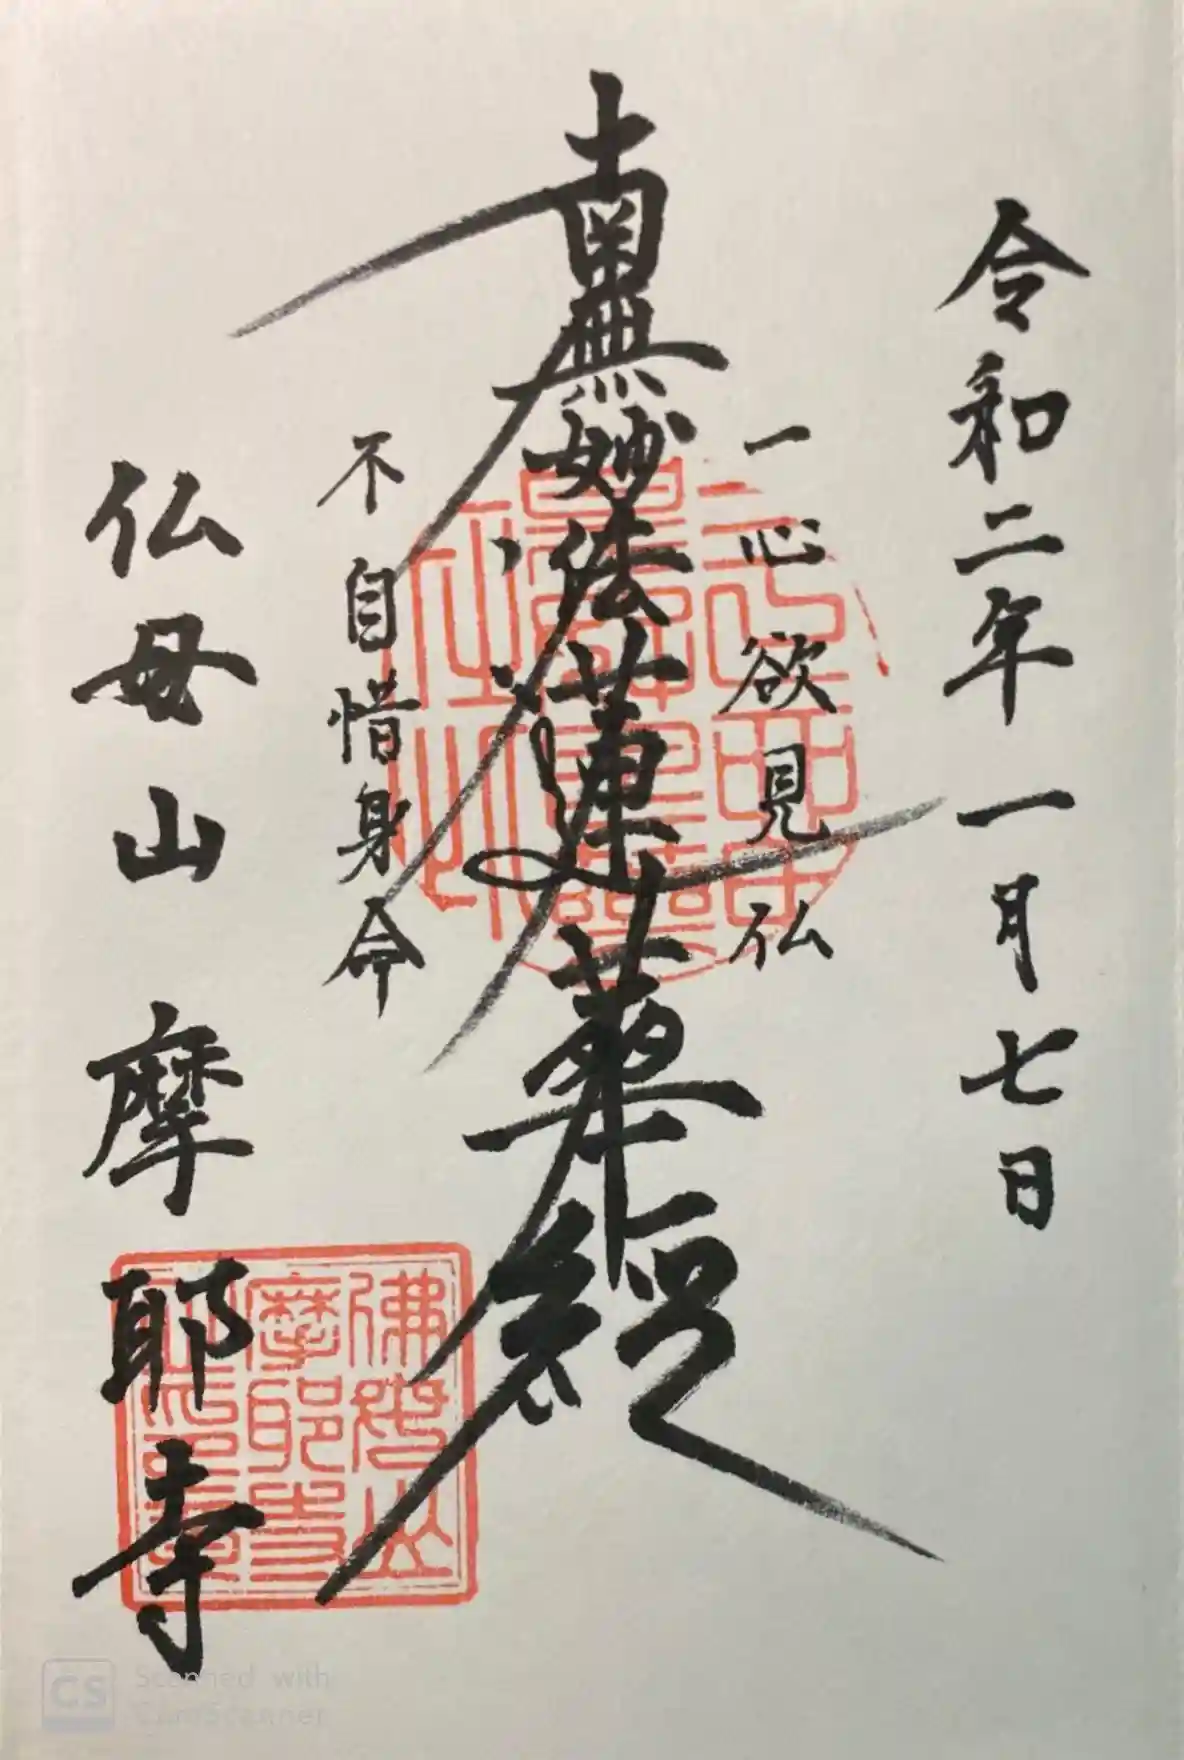 令和二年一月七日
一心欲見仏
南無妙法蓮華経
不自惜身命
仏母山 摩耶寺
佛母山
摩耶寺
CS Scanned with
CamScanner